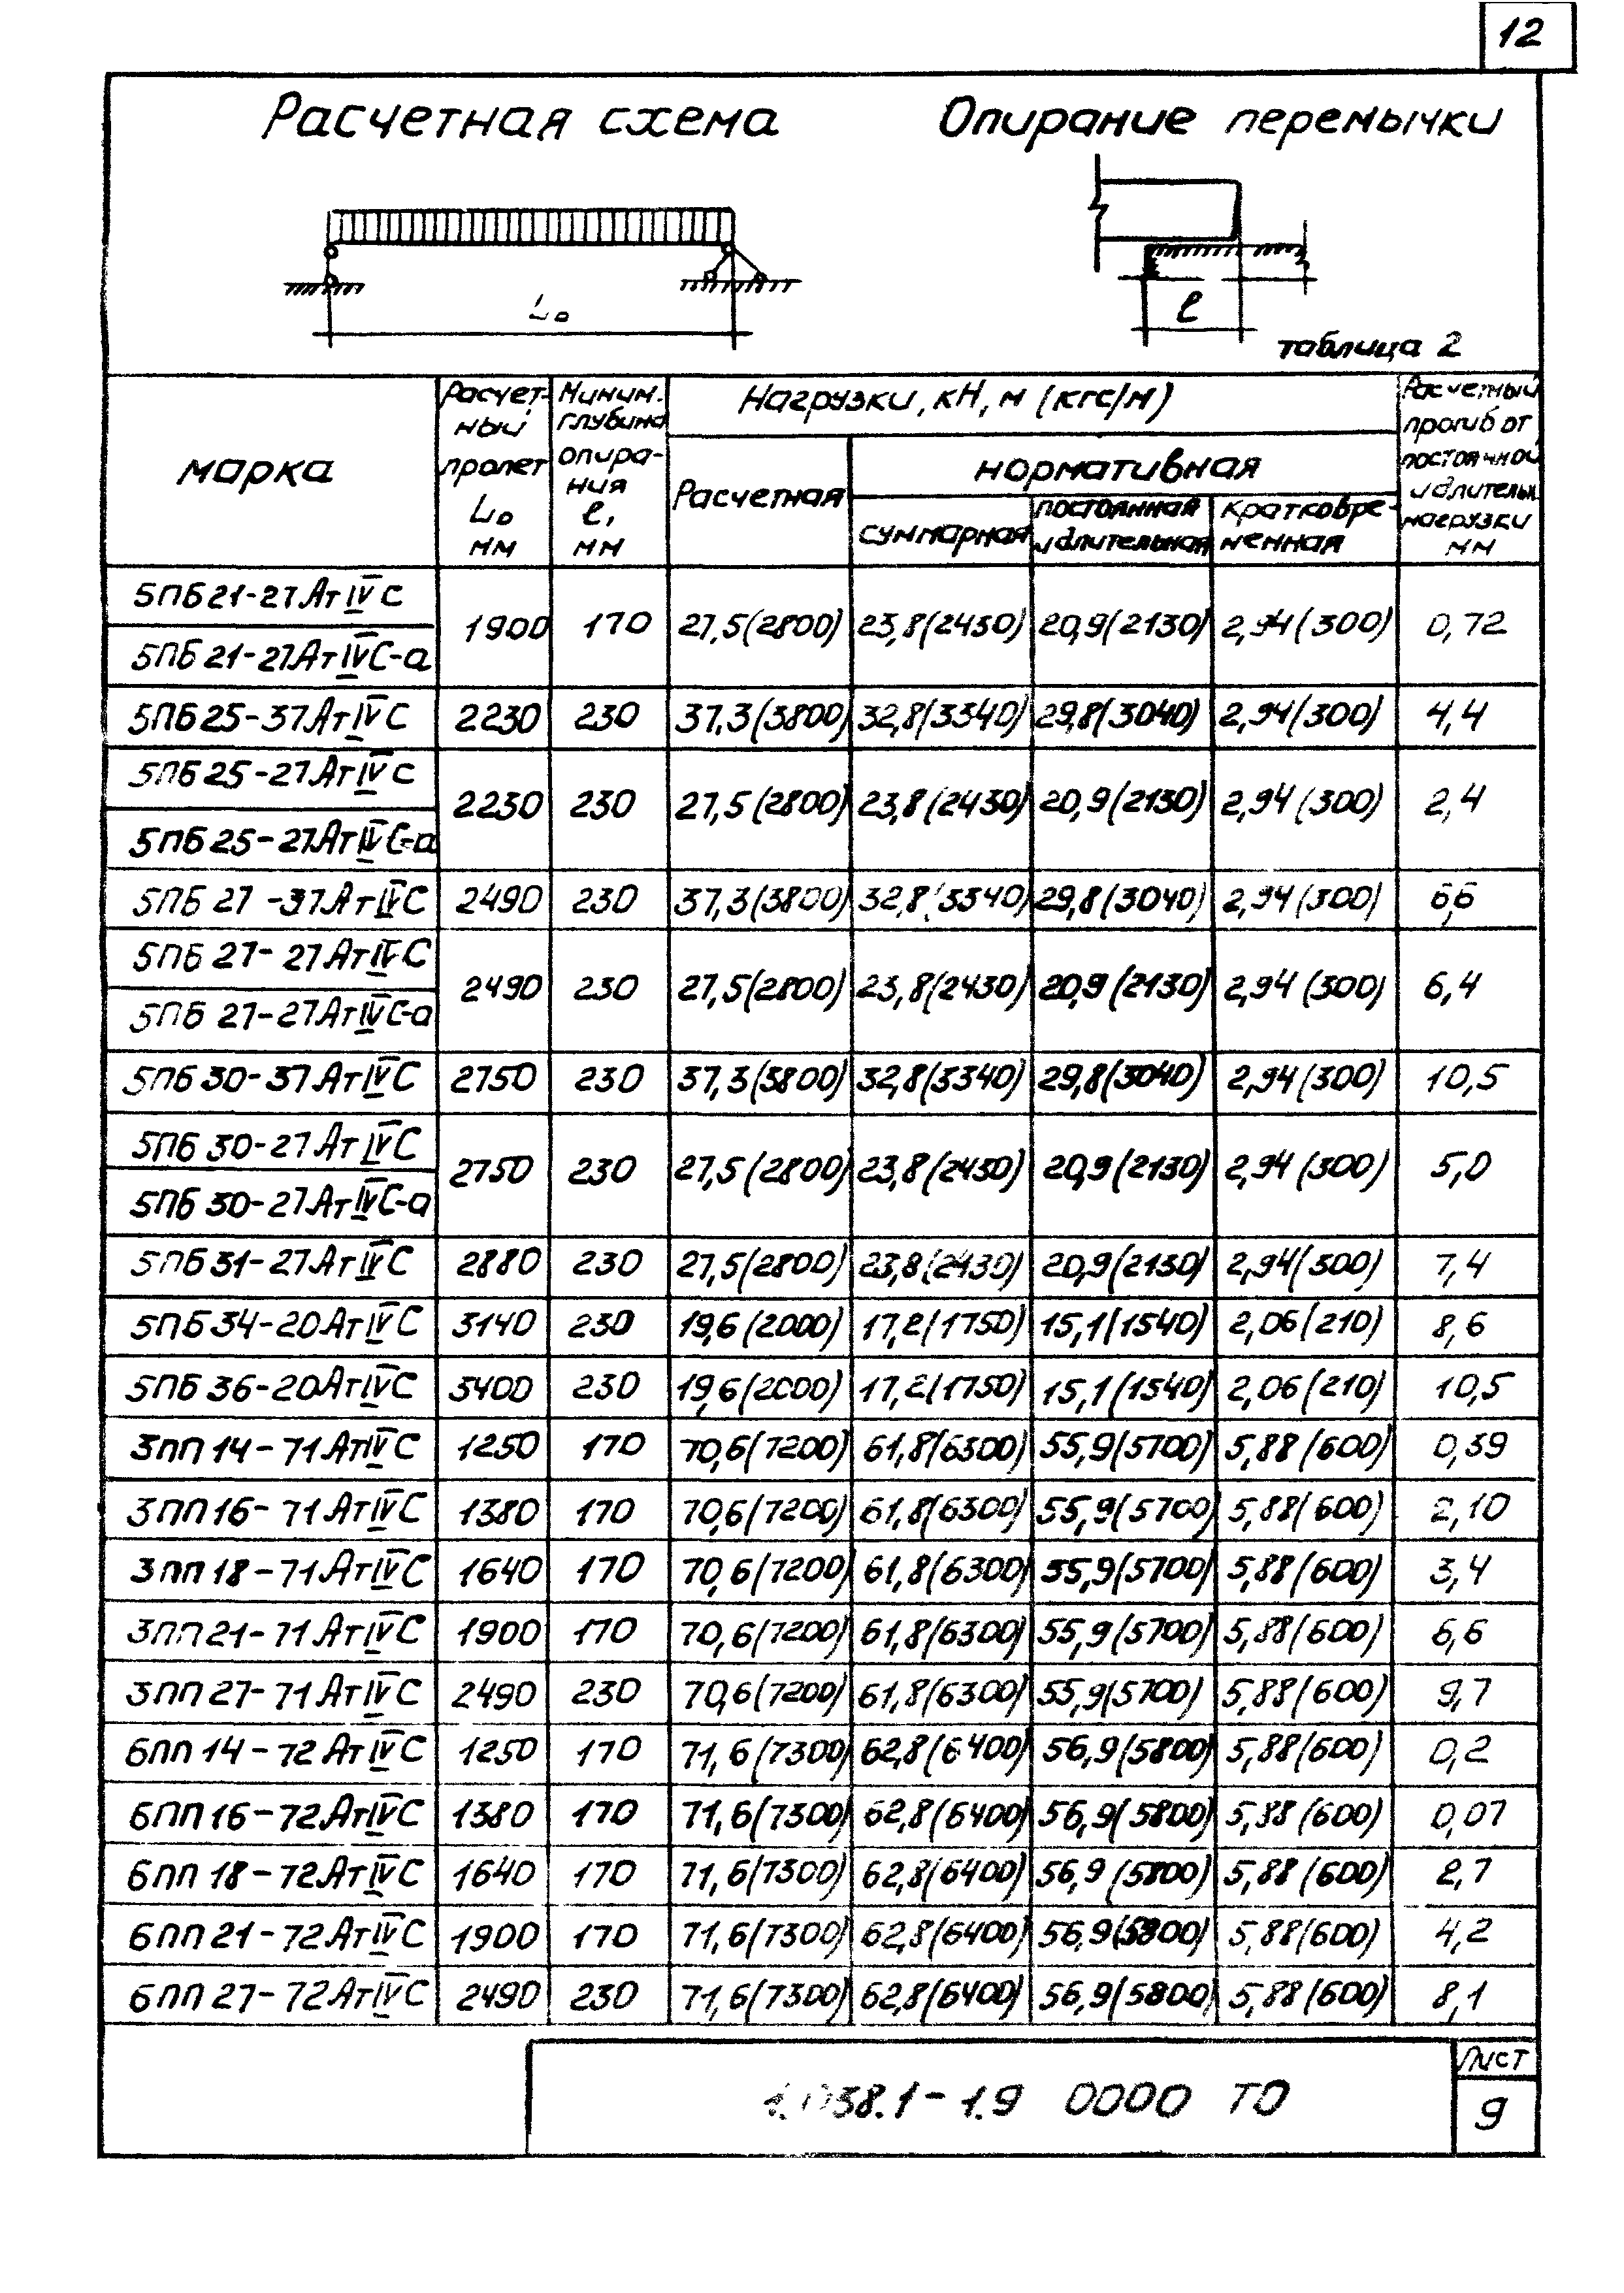 12
Расчетная схема
Опирание перемычки
Lо
l
таблица 2
марка
Расчет-
ный
пролет
Lо
мм
Миним.
глубина
опира-
ния
l,
мм
Нагрузки, кН, м (кгс/м)
Расчетная
нормативная
суммарная
постоянная
и длительная
кратковре-
менная
Расчетный
прогиб от
постоянной
и длительн.
нагрузки
мм
5ПБ21-27АтIVС
5ПБ21-27АтIVС-а
1900 170 27,5(2800) 23,8(2430) 20,9(2130) 2,94(300) 0,72
5ПБ25-37АтIVС 2230 230 37,3(3800) 32,8(3340) 29,8(3040) 2,94(300) 4,4
5ПБ25-27АтIVС
5ПБ25-27АтIVС-а
2230 230 27,5(2800) 23,8(2430) 20,9(2130) 2,94(300) 2,4
5ПБ27-37АтIVС 2490 230 37,3(3800) 32,8(3340) 29,8(3040) 2,94(300) 6,6
5ПБ27-27АтIVС
5ПБ27-27АтIVС-а
2490 230 27,5(2800) 23,8(2430) 20,9(2130) 2,94(300) 6,4
5ПБ30-37АтIVС 2750 230 37,3(3800) 32,8(3340) 29,8(3040) 2,94(300) 10,5
5ПБ30-27АтIVС
5ПБ30-27АтIVС-а
2750 230 27,5(2800) 23,8(2430) 20,9(2130) 2,94(300) 5,0
5ПБ31-27АтIVС 2880 230 27,5(2800) 23,8(2430) 20,9(2130) 2,94(300) 7,4
5ПБ34-20АтIVС 3140 230 19,6(2000) 17,2(1750) 15,1(1540) 2,06(210) 8,6
5ПБ36-20АтIVС 3400 230 19,6(2000) 17,2(1750) 15,1(1540) 2,06(210) 10,5
3ПП14-71АтIVС 1250 170 70,6(7200) 61,8(6300) 55,9(5700) 5,88(600) 0,39
3ПП16-71АтIVС 1380 170 70,6(7200) 61,8(6300) 55,9(5700) 5,88(600) 2,10
3ПП18-71АтIVС 1640 170 70,6(7200) 61,8(6300) 55,9(5700) 5,88(600) 3,4
3ПП21-71АтIVС 1900 170 70,6(7200) 61,8(6300) 55,9(5700) 5,88(600) 6,6
3ПП27-71АтIVС 2490 230 70,6(7200) 61,8(6300) 55,9(5700) 5,88(600) 9,7
6ПП14-72АтIVС 1250 170 71,6(7300) 62,8(6400) 56,9(5800) 5,88(600) 0,2
6ПП16-72АтIVС 1380 170 71,6(7300) 62,8(6400) 56,9(5800) 5,88(600) 0,07
6ПП18-72АтIVС 1640 170 71,6(7300) 62,8(6400) 56,9(5800) 5,88(600) 2,7
6ПП21-72АтIVС 1900 170 71,6(7300) 62,8(6400) 56,9(5800) 5,88(600) 4,2
6ПП27-72АтIVС 2490 230 71,6(7300) 62,8(6400) 56,9(5800) 5,88(600) 8,1
1.038.1-1.9 0000 ТО
Лист
9